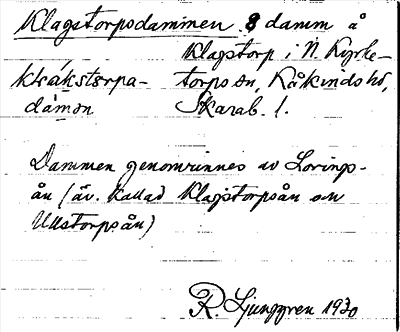 Klagstorpsdammen 8 damm å
Klagstorp i N. Kyrke-
torps sn, Kåkinds hd,
Skarab. l.
klákstørpa-
dámən
Dammen genomrinnes av Lorings-
ån (äv. kallad Klagstorpsån och
Ullstorpsån)
R. Ljunggren 1930